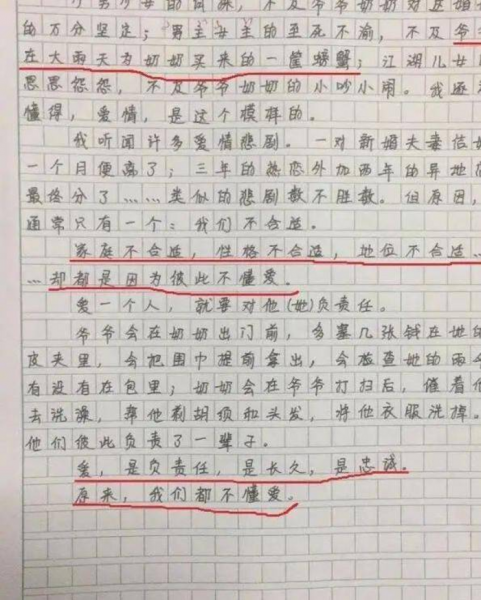 的万分坚定；男主女主的至死不渝，不及爷
在大雨天为奶奶买来的一筐螃蟹；江湖儿女
恩恩怨怨，不及爷爷奶奶的小吵小闹。我逐
懂得，爱情，是这个模样的。
我听闻许多爱情悲剧。一对新婚夫妻结婚
一个月便离了；三年的热恋外加两年的异地
最终分了……类似的悲剧数不胜数。但原因，
通常只有一个：我们不合适。
家庭不合适，性格不合适，地位不合适…
…却都是因为彼此不懂爱。
爱一个人，就要对他（她）负责任。
爷爷会在奶奶出门前，多塞几张钱在她的
皮夹里，会把围巾提前拿出，会检查她的雨伞
有没有在包里；奶奶会在爷爷打扫后，催着他
去洗澡，帮他剃胡须和头发，将他衣服洗掉。
他们彼此负责了一辈子。
爱，是负责任，是长久，是忠诚。
原来，我们都不懂爱。